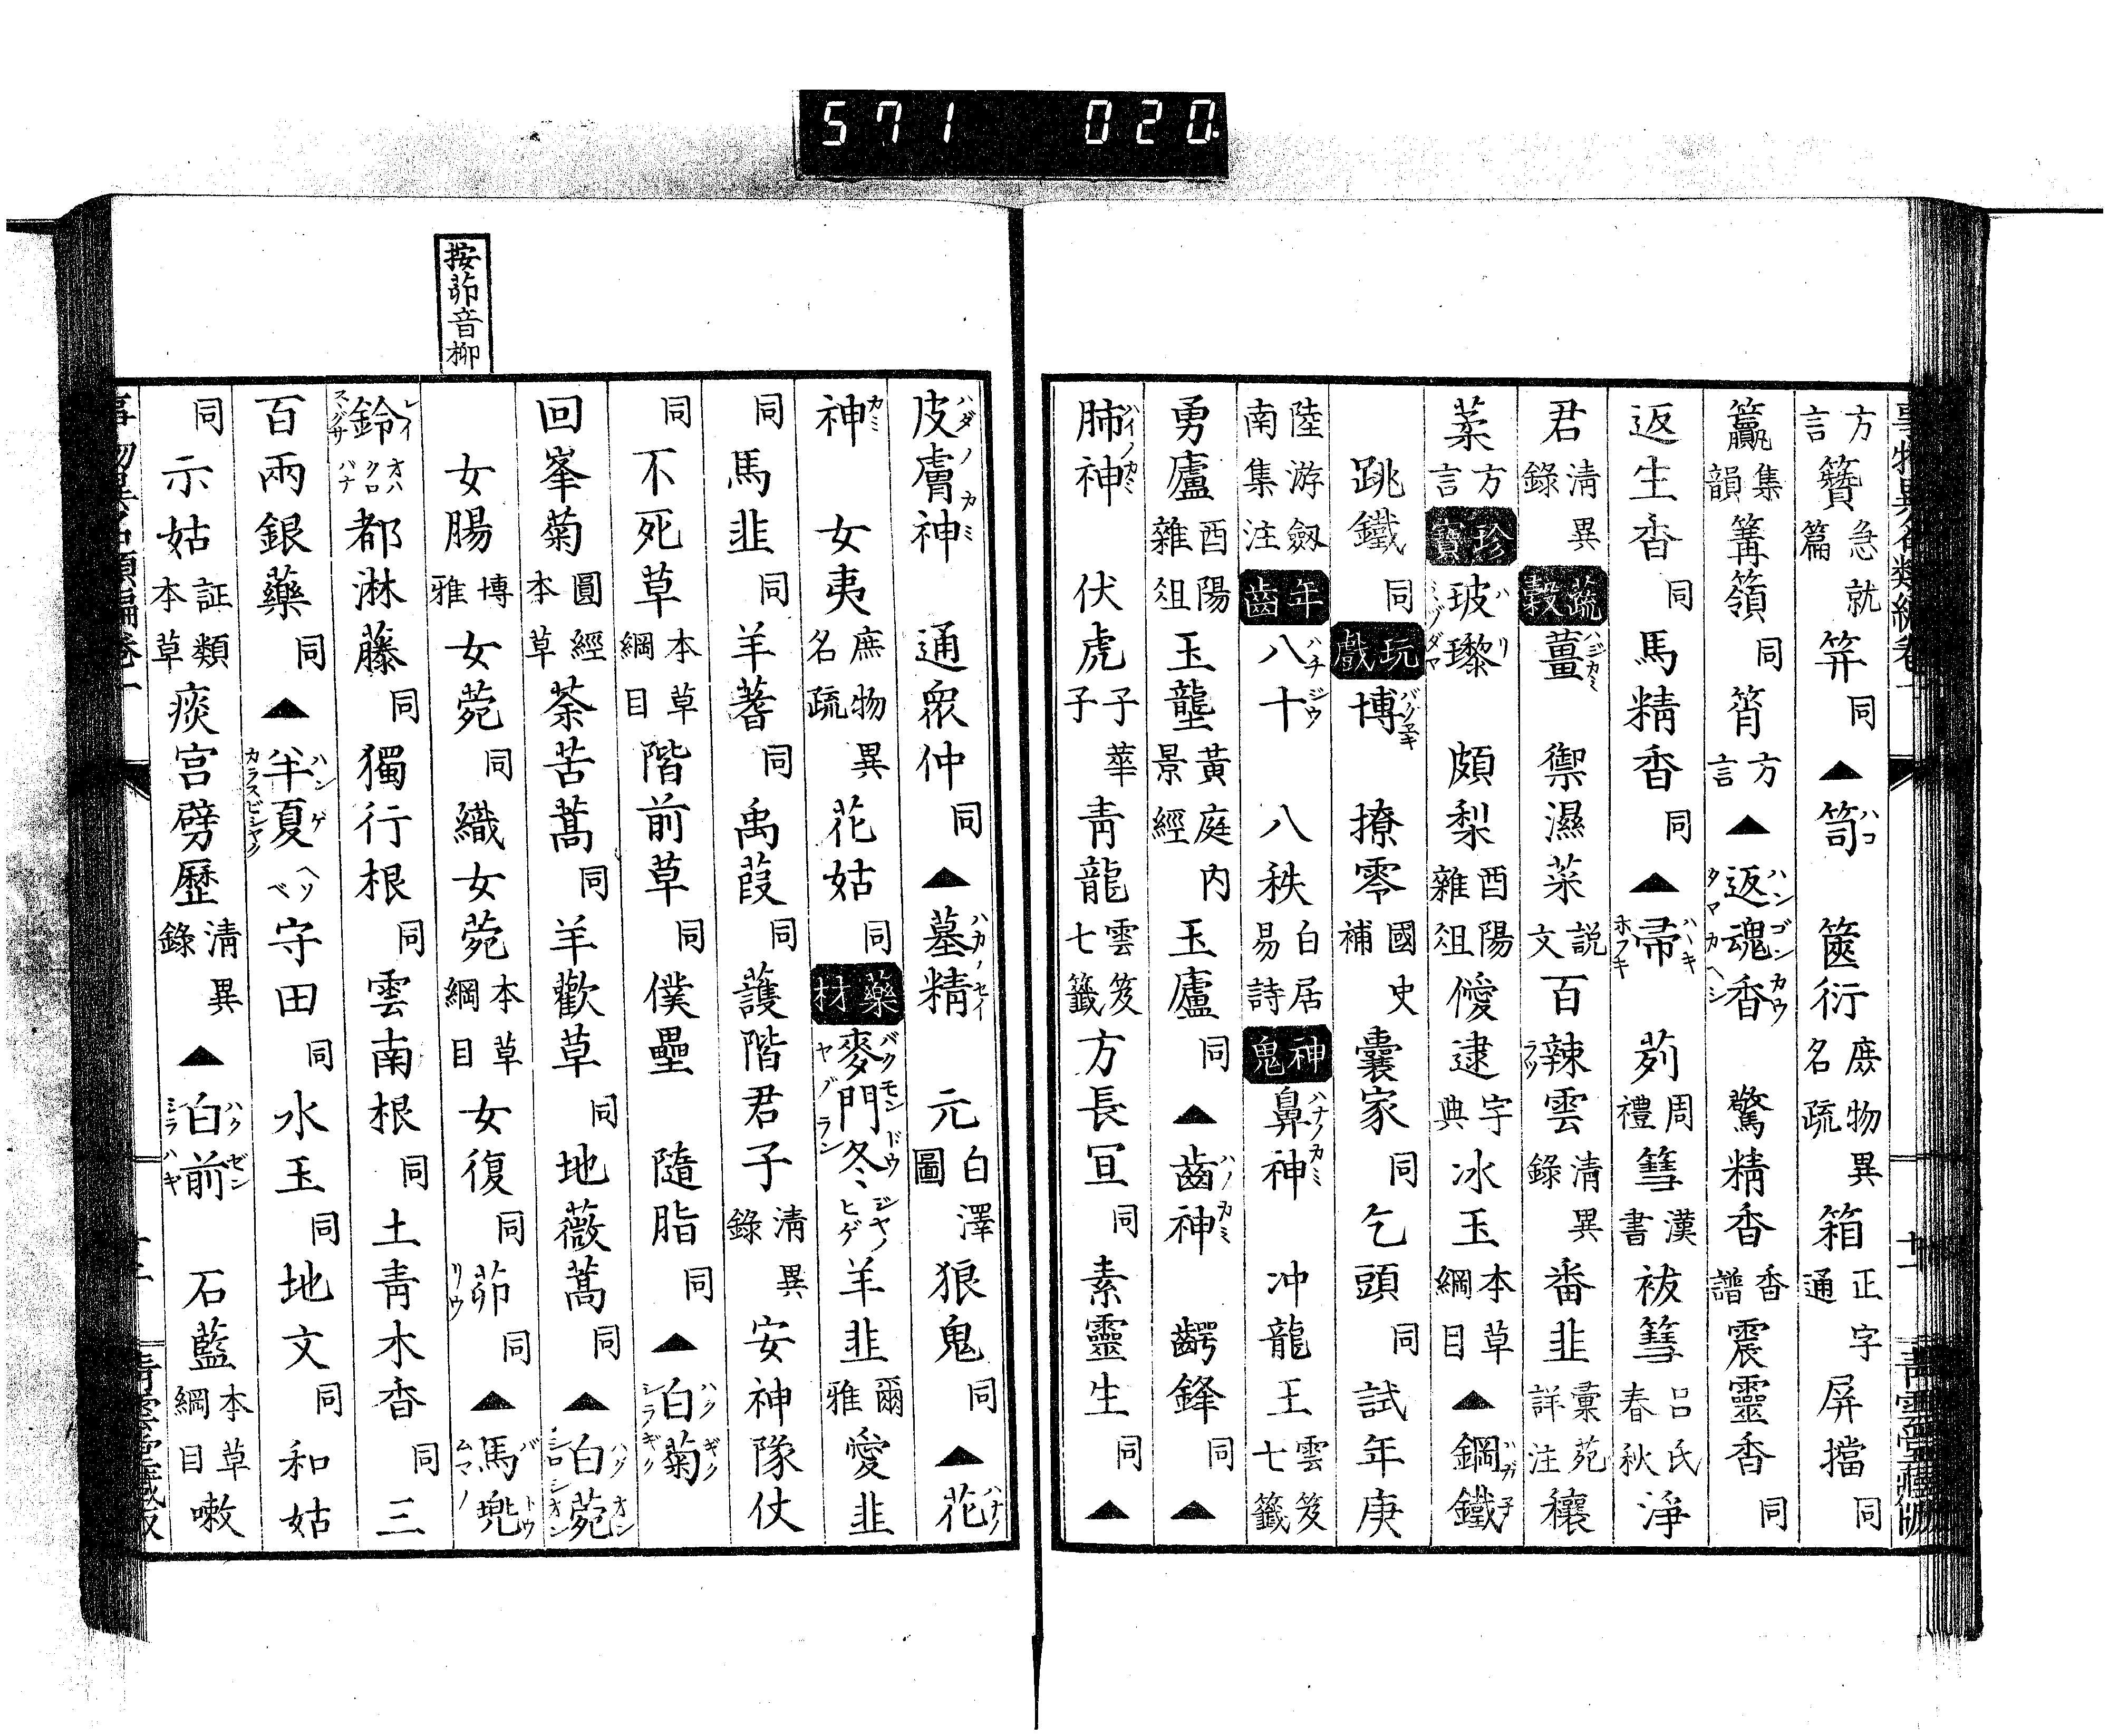 571 020
方言 籫 急就篇 笄 同 ▲ 笥 ハコ 篋衍 庶物異名疏 箱 正字通 屏擋 同
籯 集韻 篝笭 同 筲 方言 ▲ 返魂香 ハンゴンカウ タマカヘシ 驚精香 香譜 震靈香 同
返生香 同 馬精香 同 ▲ 帚 ハヽキ ホフキ 茢 周禮 篲 漢書 祓篲 呂氏春秋 淨
君 清異錄 蔬穀 薑 ハジカミ 禦濕菜 説文 百辣雲 ラツ 清異錄 番韭 彙苑詳注 穰
菜 方言 珍寶 玻瓈 ハリ ミヅダマ 頗梨 酉陽雜俎 靉逮 字典 冰玉 本草綱目 ▲ 鋼鐵 ハガ子
跳鐵 同 玩戲 博 バクエキ 撩零 國史補 囊家 同 乞頭 同 試年庚
陸游南集劔注 年齒 八十 ハチジウ 八秩 白居易詩 神鬼 鼻神 ハナノカミ 冲龍王 雲笈七籤
勇廬 酉陽雜俎 玉壟 黃庭内景經 玉廬 同 ▲ 齒神 ハノカミ 齶鋒 同 ▲
肺神 ハイノカミ 伏虎 子華子 青龍 雲笈七籤 方長宜 同 素靈生 同 ▲
皮膚神 ハダノカミ 通衆仲 同 ▲ 墓精 ハカノセイ 元 白澤圖 狼鬼 同 ▲ 花 ハナノ
神 カミ 女夷 庶物異名疏 花姑 同 藥材 麥門冬 バクモンドウ ヤブラン ジヤノヒゲ 羊韭 爾雅 愛韭
同 馬韭 同 羊蓍 同 禹葭 同 護階君子 清異錄 安神隊仗
同 不死草 本草綱目 階前草 同 僕壘 隨脂 同 ▲ 白菊 ハクギク シラギク
回峯菊 圓經本草 荼苦蒿 同 羊歡草 同 地薇蒿 同 ▲ 白菀 ハクオン シロシオン
按茆音柳
女腸 博雅 女菀 同 織女菀 本草綱目 女復 同 茆 リウ 同 ▲ 馬兜 バトウ ムマノ
鈴 レイ スヾグサ オハクロバナ 都淋藤 同 獨行根 同 雲南根 同 土青木香 同 三
百兩銀藥 同 ▲ 半夏 ハンゲ カラスビシヤク ヘソベ 守田 同 水玉 同 地文 同 和姑
同 示姑 証類本草 痰宮劈歷 清異錄 ▲ 白前 ハクゼン シラハギ 石藍 本草綱目 嗽